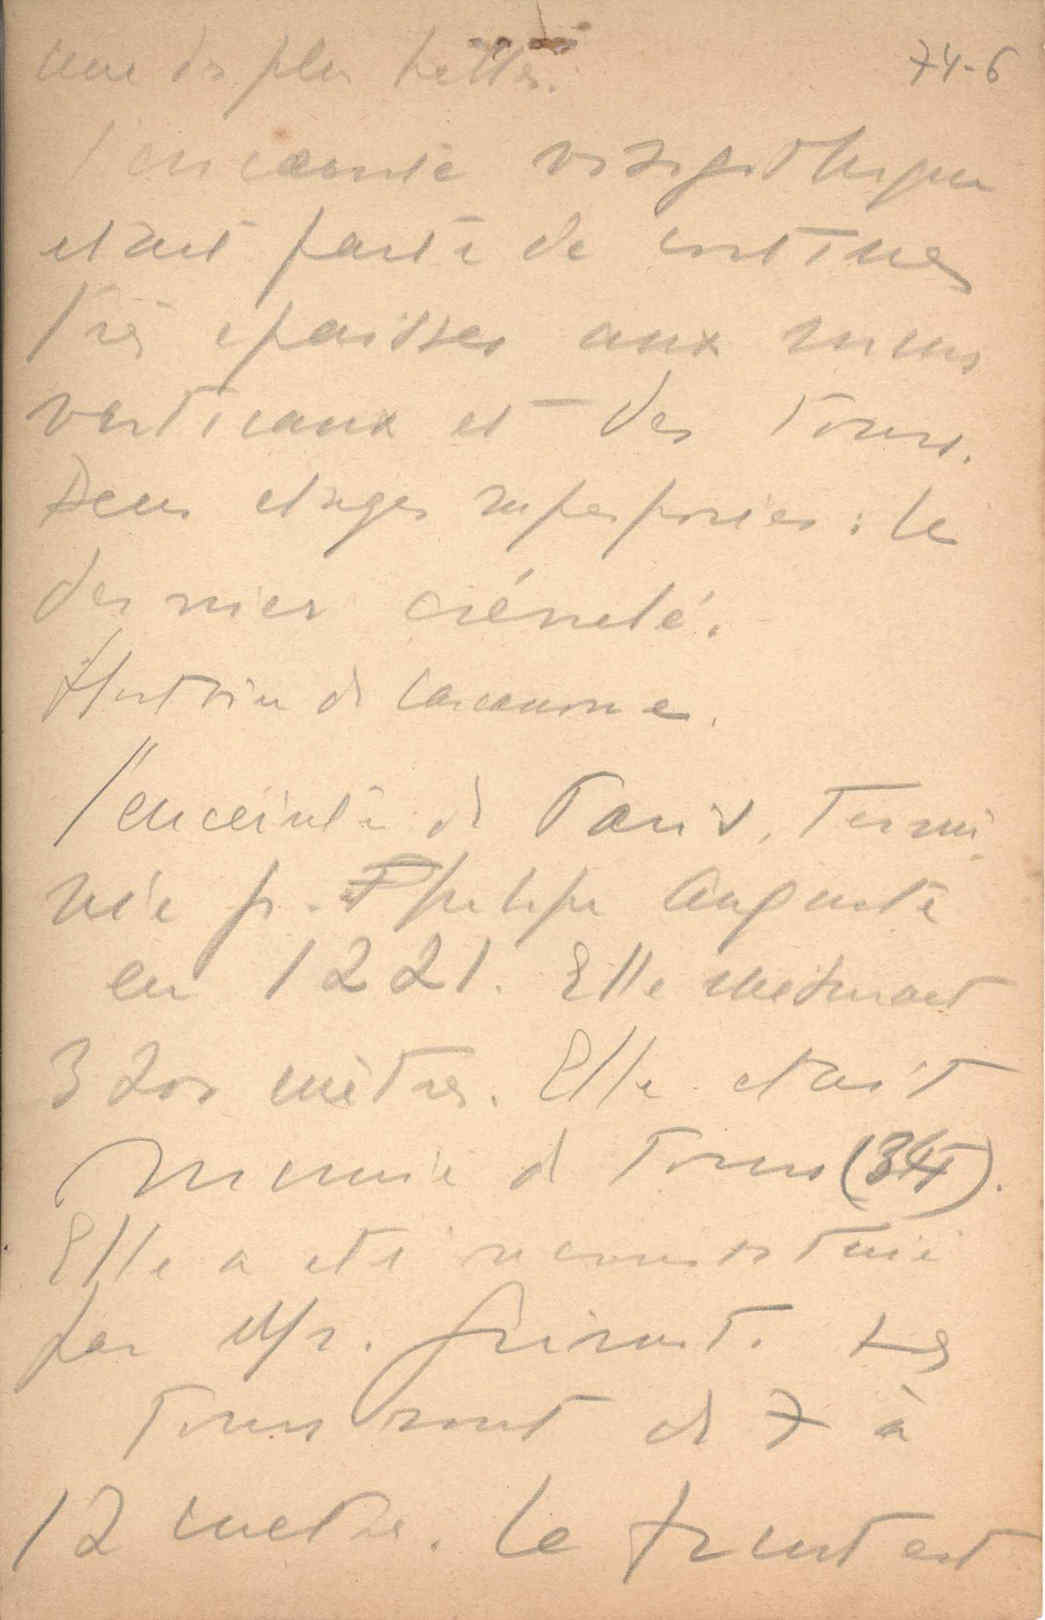 une ds plus belles.
74-6
l'enceinte visigothique
etait faite de cortines
très epaisses aux murs
verticaux et des tours.
Deux etages superposées : le
dernier crénelé.
Histoire de Carcassonne.
l'enceinte de Paris, termi
née p. Philippe Auguste
en 1221. Elle mesurait
3200 mètres. Elle etait
munie d tours (34).
Elle a eté reconstituée
par Mr. Guirant. Les
tours sont de 7 à
12 metres. Le front est